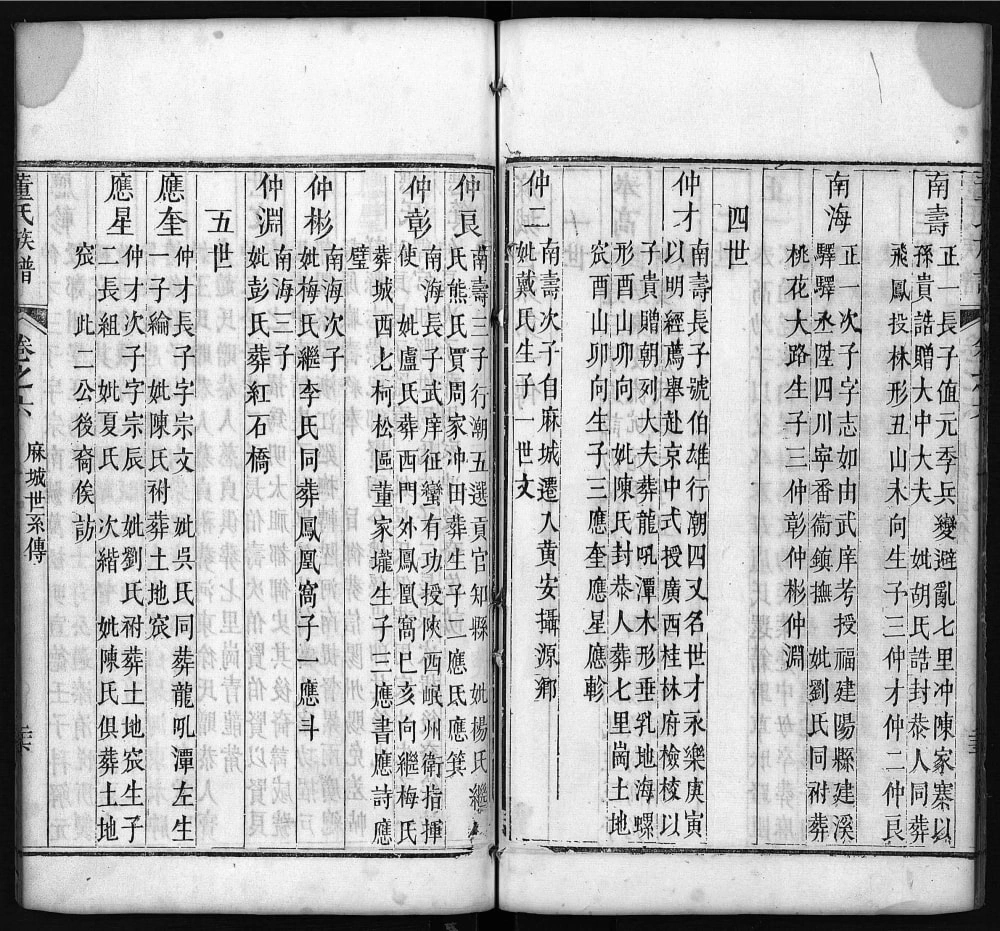 南壽正一長子值元季兵變避亂七里冲陳家寨以
孫貴誥贈大中大夫　妣胡氏誥封恭人同葬
飛鳳投林形丑山未向生子三仲才仲二仲良
南海正一次子字志如由武庠考授福建陽縣建溪
驛驛丞陞四川寧番衞鎮撫　妣劉氏同祔葬
桃花大路生子三仲彰仲彬仲淵
四世
仲才南壽長子號伯雄行潮四又名世才永樂庚寅
以明經薦舉赴京中式授廣西桂林府檢校以
子貴贈朝列大夫葬龍吼潭木形垂乳地海螺
形酉山卯向　妣陳氏封恭人葬七里崗土地
㝑酉山卯向生子三應奎應星應軫
仲二南壽次子自麻城遷入黄安攝源鄉
妣戴氏生子一世文
仲良南壽三子行潮五選貢官知縣　妣楊氏繼
氏熊氏賈周家冲田葬生子二應氐應箕
仲彰南海長子武庠征蠻有功授陝西岷州衛指揮
使　妣盧氏葬西門外鳳凰窩巳亥向繼梅氏
葬城西北柯松區董家壠生子三應書應詩應
璧
仲彬南海次子
妣梅氏繼李氏同葬鳳凰窩子一應斗
仲淵南海三子
妣彭氏葬紅石橋
五世
應奎仲才長子字宗文　妣吳氏同葬龍吼潭左生
一子綸　妣陳氏祔葬土地㝑
應星仲才次子字宗辰　妣劉氏祔葬土地㝑生子
二長組　妣夏氏　次緒　妣陳氏俱葬土地
㝑　此二公後裔俟訪
董氏族譜　卷之六　麻城世系傳